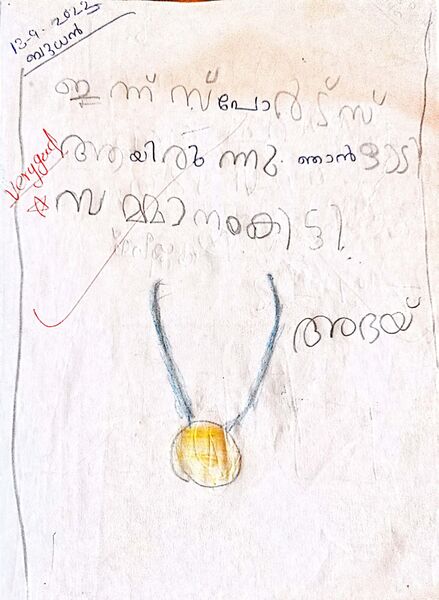 13-9-2023
ബുധൻ
ഇന്ന് സ്പോർട്സ്
ആയിരുന്നു. ഞാൻ ഓടി
സമ്മാനം കിട്ടി.
Very good
അഭയ്